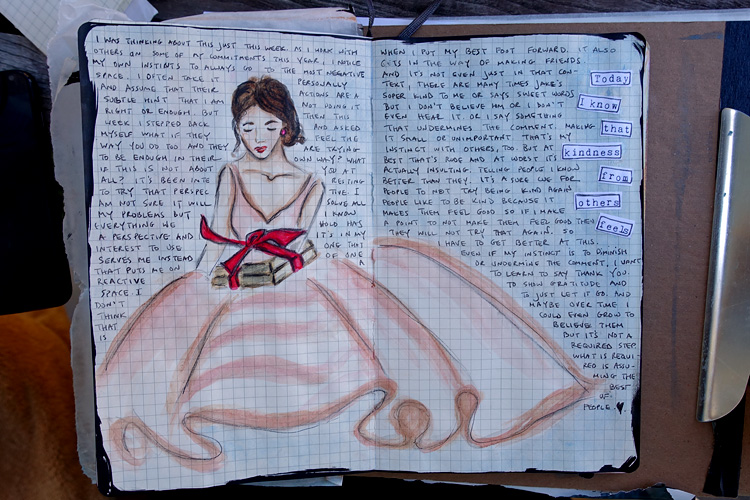 I WAS THINKING ABOUT THIS JUST THIS WEEK. AS I WORK WITH
OTHERS ON SOME OF MY COMMITMENTS THIS YEAR, I NOTICE
MY OWN INSTINTS TO ALWAYS GO TO THE MOST NEGATIVE
SPACE. I OFTEN TAKE IT PERSONALLY
AND ASSUME THAT THEIR ACTIONS ARE A
SUBTLE HINT THAT I AM NOT DOING IT
RIGHT OR ENOUGH. BUT THEN THIS
WEEK I STEPPED BACK AND ASKED
MYSELF WHAT IF THEY FEEL THE
WAY YOU DO AND THEY ARE TRYING
TO BE ENOUGH IN THEIR OWN WAY? WHAT
IF THIS IS NOT ABOUT YOU AT
ALL? IT'S BEEN INTE RESTING
TO TRY THAT PERSPEC TIVE. I
AM NOT SURE IT WILL SOLVE ALL
MY PROBLEMS BUT I KNOW
EVERYTHING WE HOLD HAS
A PERSPECTIVE AND IT'S IN MY
INTEREST TO USE ONE THAT
SERVES ME INSTEAD OF ONE
THAT PUTS ME ON A
REACTIVE
SPACE. I
DON'T
THINK
THAT
IS
WHEN I PUT MY BEST FOOT FORWARD. IT ALSO
GETS IN THE WAY OF MAKING FRIENDS.
AND IT'S NOT EVEN JUST IN THAT CON-
TEXT, THERE ARE MANY TIMES JAKE'S
SUPER KIND TO ME OR SAYS SWEET WORDS
BUT I DON'T BELIEVE HIM OR I DON'T
EVEN HEAR IT. OR I SAY SOMETHING
THAT UNDERMINES THE COMMENT. MAKING
IT SMALL OR UNIMPORTANT. THAT'S MY
INSTINCT WITH OTHERS, TOO. BUT AT
BEST THAT'S RUDE AND AT WORST IT'S
ACTUALLY INSULTING. TELLING PEOPLE I KNOW
BETTER THAN THEY. IT'S A SURE WAY FOR
PEOPLE TO NOT TRY BEING KIND AGAIN.
PEOPLE LIKE TO BE KIND BECAUSE IT
MAKES THEM FEEL GOOD. SO IF I MAKE
A POINT TO NOT MAKE THEM FEEL GOOD THEN
THEY WILL NOT TRY THAT AGAIN. SO
I HAVE TO GET BETTER AT THIS.
EVEN IF MY INSTINCT IS TO DIMINISH
OR UNDERMINE THE COMMENT, I WANT
TO LEARN TO SAY THANK YOU.
TO SHOW GRATITUDE AND
TO JUST LET IT GO. AND
MAYBE OVER TIME I
COULD EVEN GROW TO
BELIEVE THEM
BUT IT'S NOT A
REQUIRED STEP.
WHAT IS REQUI-
RED IS ASSU-
MING THE
BEST
OF
PEOPLE.
Today
I know
that
kindness
from
others
feels